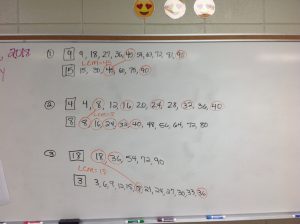 2018
y
① 9 9, 18, 27, 36, 45, 54, 63, 72, 81, 90
LCM=45
15 15, 30, 45, 60, 75, 90
② 4 4, 8, 12, 16, 20, 24, 28, 32, 36, 40
LCM=8
8 8, 16, 24, 32, 40, 48, 56, 64, 72, 80
③ 18 18, 36, 54, 72, 90
LCM=18
3 3, 6, 9, 12, 15, 18, 21, 24, 27, 30, 33, 36